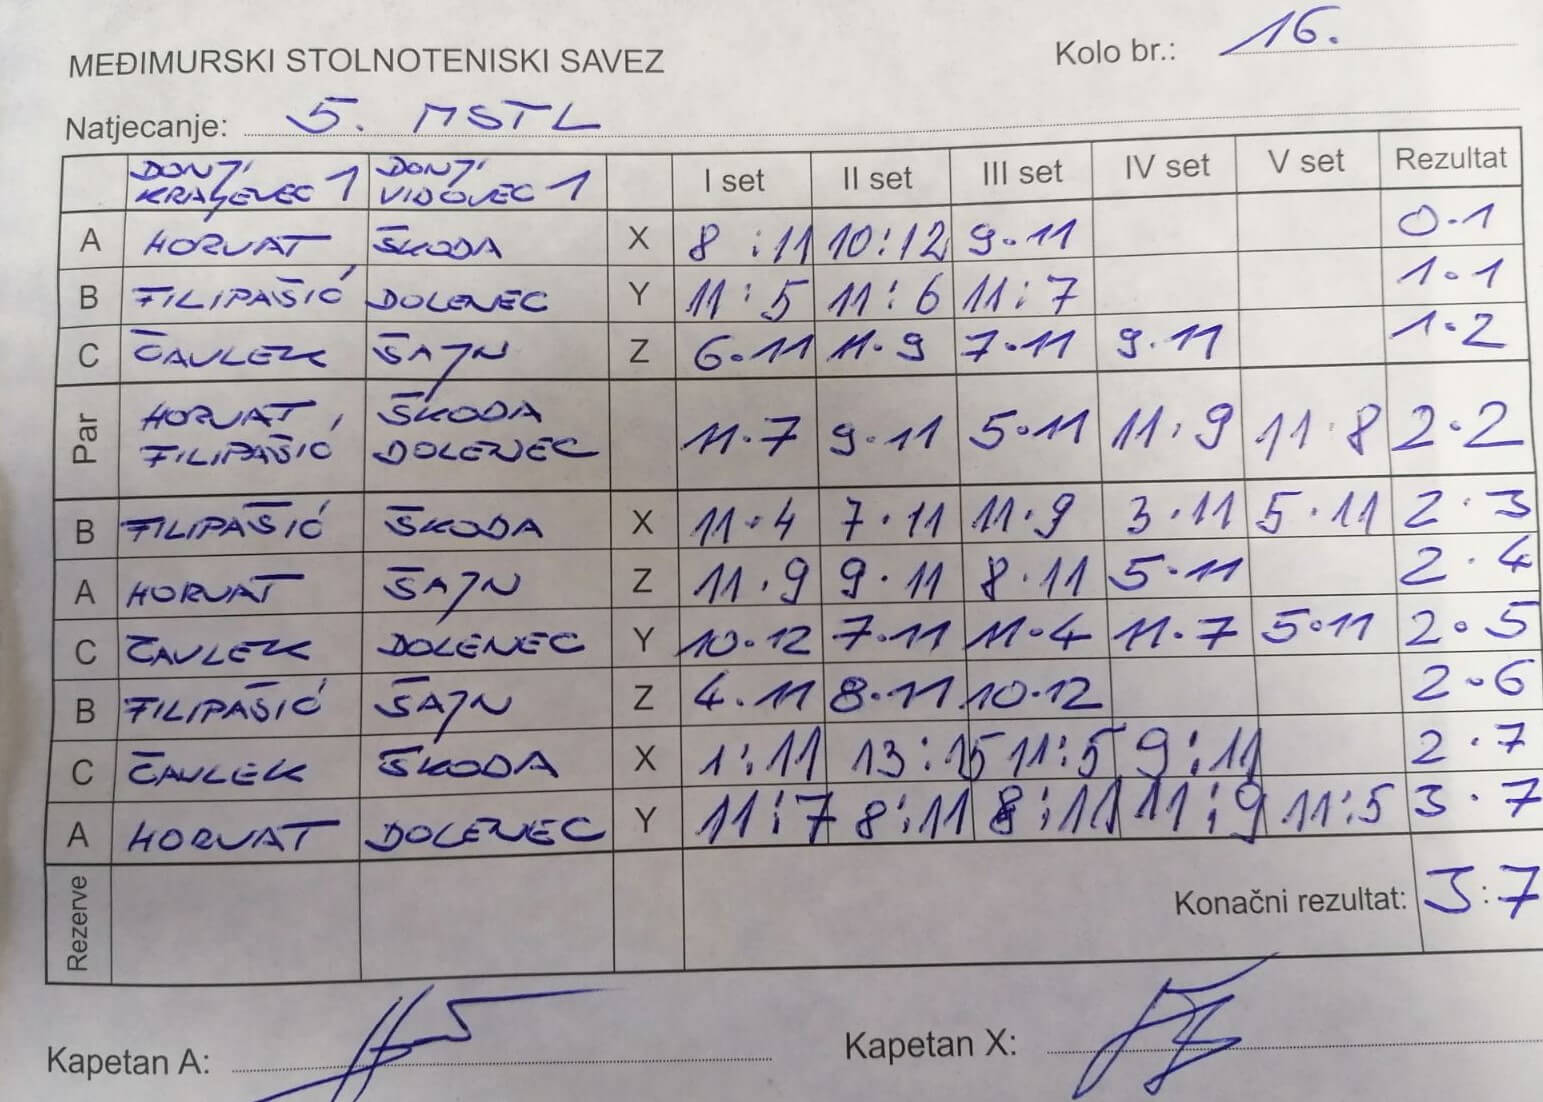 MEĐIMURSKI STOLNOTENISKI SAVEZ Kolo br.: 16.
Natjecanje: 5. MSTL
DONJI KRALJEVEC 1 DONJI VIDOVEC 1 I set II set III set IV set V set Rezultat
A HORVAT ŠKODA X 8:11 10:12 9·11 0·1
B FILIPAŠIĆ DOLENEC Y 11:5 11:6 11:7 1·1
C ČAVLEK ŠAJN Z 6·11 11·9 7·11 9·11 1·2
Par HORVAT, FILIPAŠIĆ ŠKODA DOLENEC 11·7 9·11 5·11 11:9 11:8 2·2
B FILIPAŠIĆ ŠKODA X 11·4 7·11 11·9 3·11 5·11 2·3
A HORVAT ŠAJN Z 11·9 9·11 8·11 5·11 2·4
C ČAVLEK DOLENEC Y 10·12 7·11 11·4 11·7 5·11 2·5
B FILIPAŠIĆ ŠAJN Z 4·11 8·11 10·12 2·6
C ČAVLEK ŠKODA X 1:11 13:15 11:5 9:11 2·7
A HORVAT DOLENEC Y 11:7 8:11 8:11 11:9 11:5 3·7
Rezerve Konačni rezultat: 3:7
Kapetan A: Kapetan X: